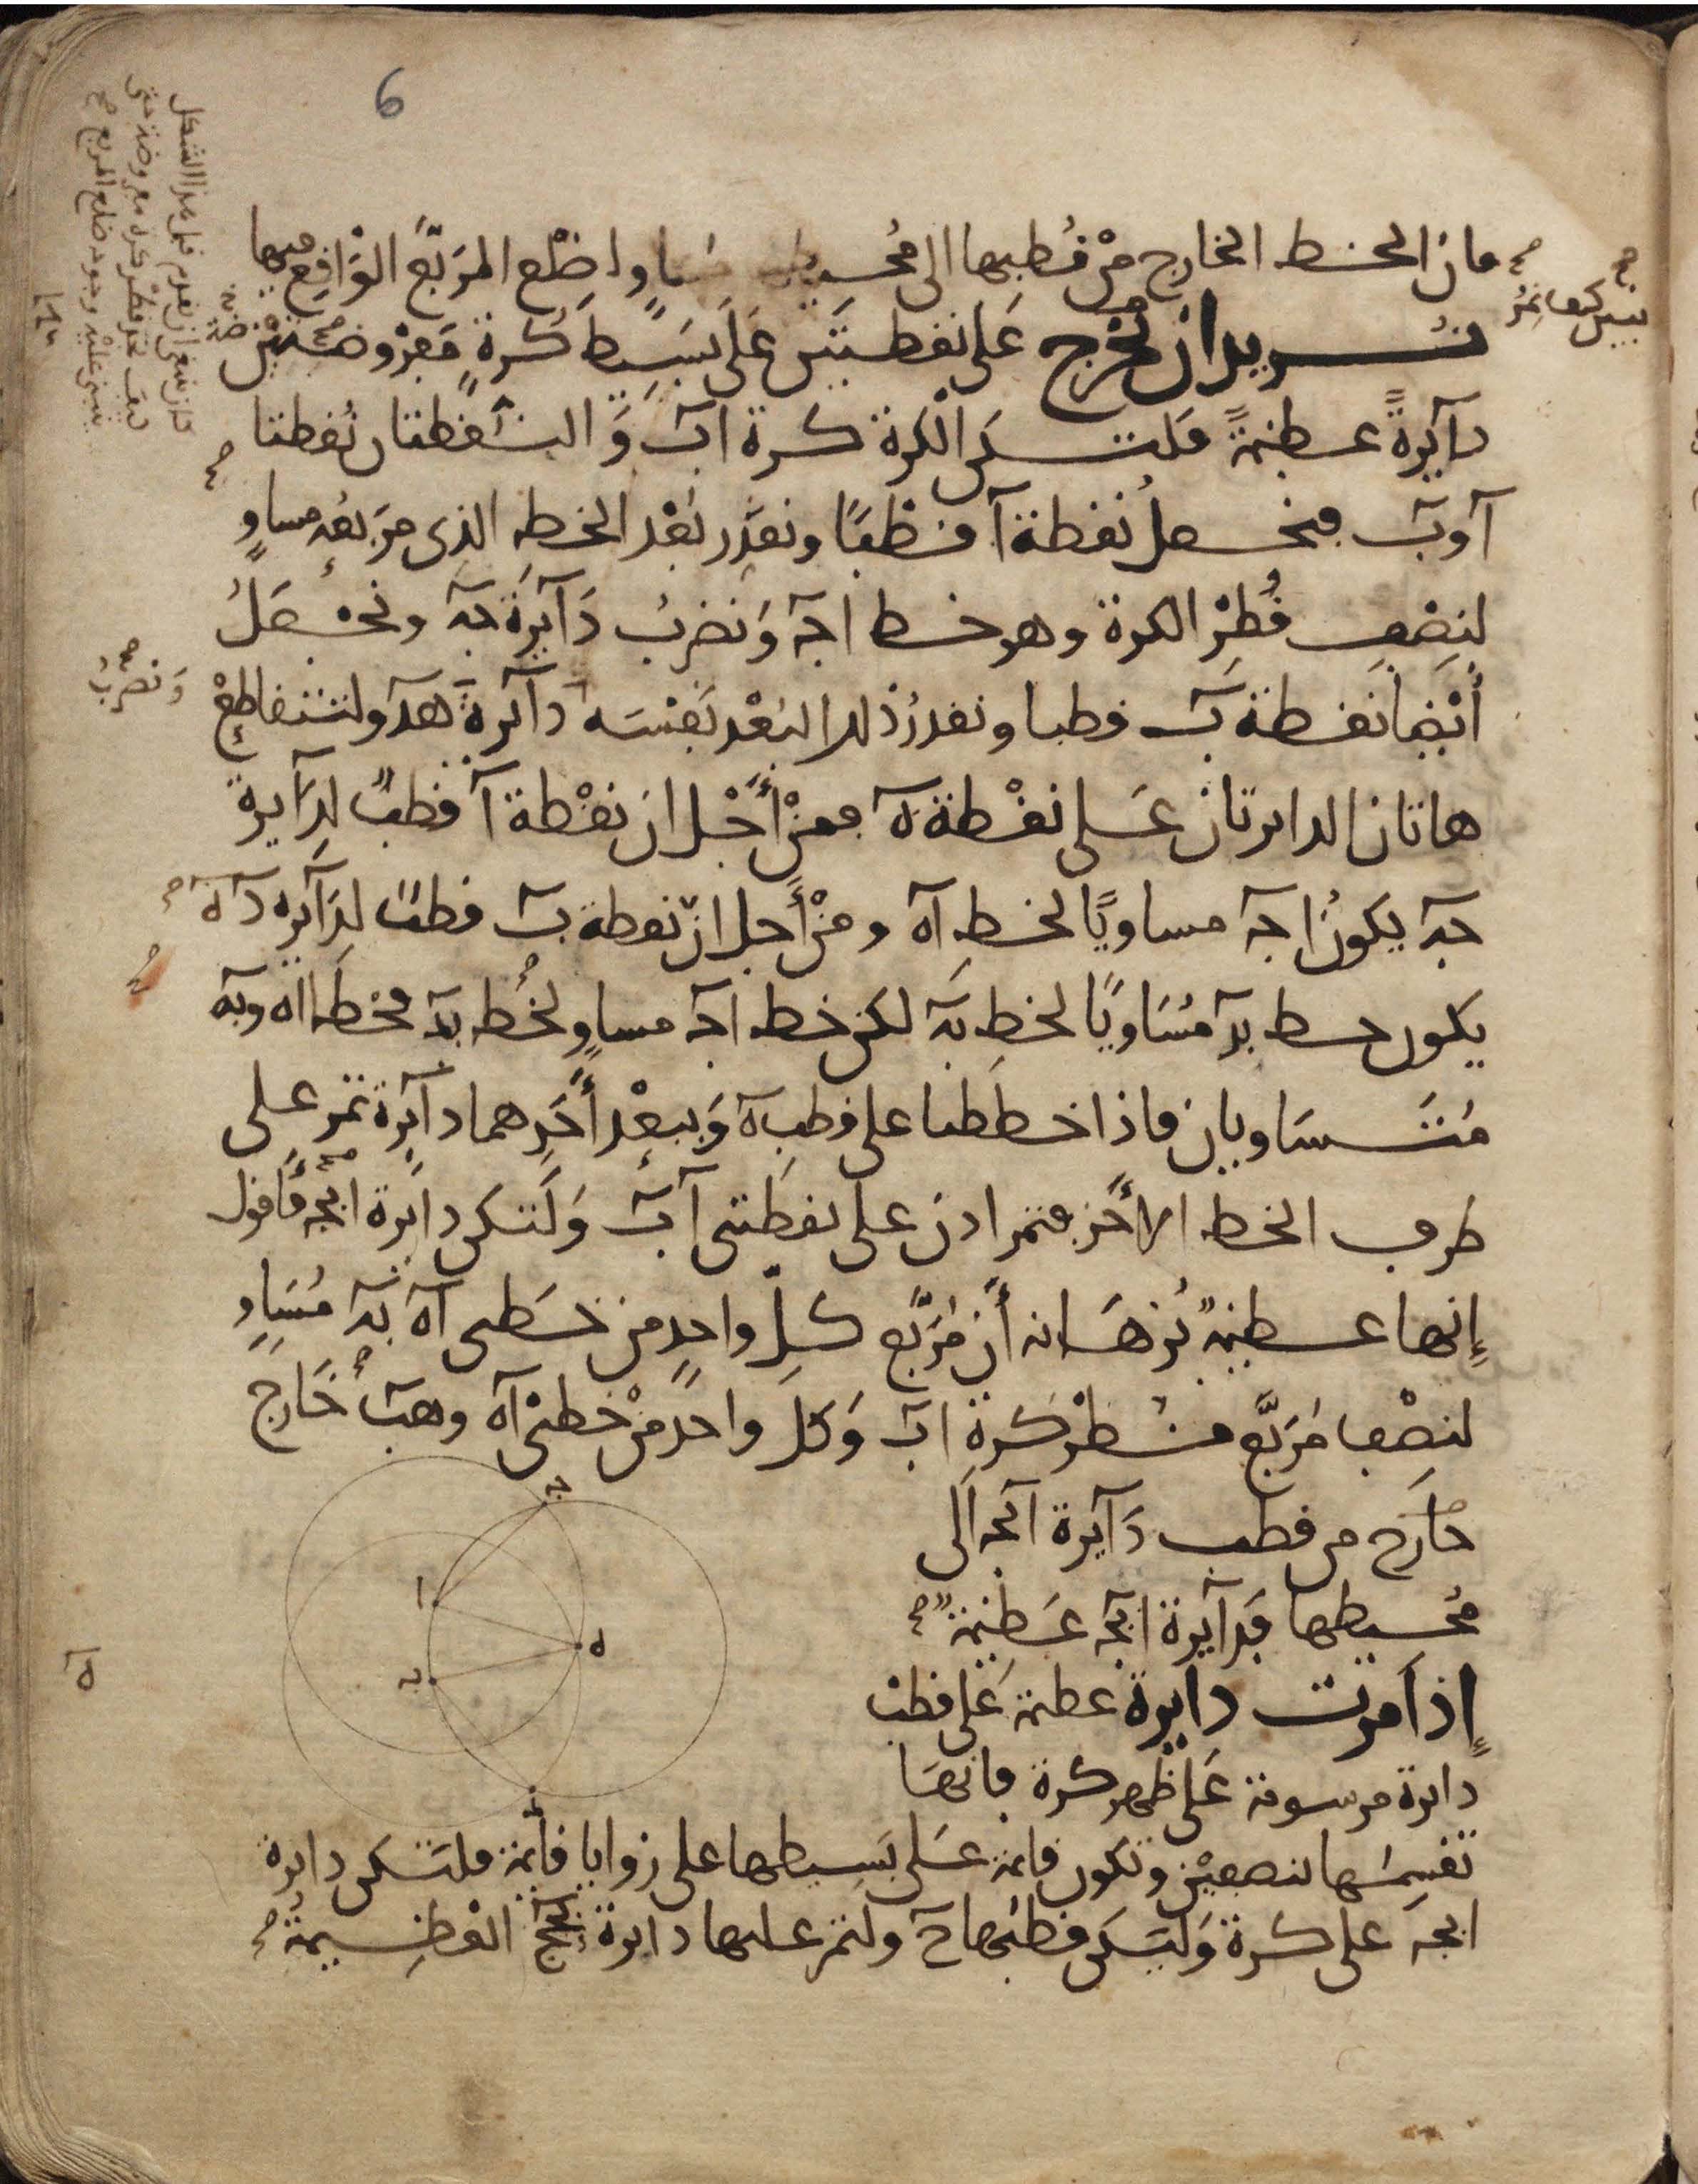 6
فان الخط الخارج من قطبها الى محيطها مساو لضلع المربع الواقع فيها
نريد ان نخرج على نقطتين على بسيط كرة مفروضتين
دآيرةً عظيمةً فلتكن الكرة كرة اب وَالنقطتان نُقطتا
آ وب فنجعل نقطة آ قطبًا ونقدّر بُعْد الخط الذى مربعه مساوٍ
لنصف قُطْر الكرة وهو خط اجـ وَنضرب دَآيرة جه ونجعل
أيْضا نقطة ب قطبا ونقدر ذلك البُعْد بعَيْنه دآيرة هد ولتتقاطع
هاتان الدايرتان على نقطة ه فمن أجل ان نقطة آ قطبٌ لدآيرة
جه يكون اجـ مساويًا لخط اه ومن أجل ان نقطة ب قطبٌ لدآيره د ه
يكون خط بد مُسَاويًا لخط به لكن خط اجـ مساوٍ لخط بد فخطا اه وبه
متساويان فاذا خططنا على قطب ه وَببعْد أحدهما دآيرة تمر على
طرف الخط الأخر فتمر اذن على نقطتى آ ب وَلتكن دايرة ابجـ فأقول
إنها عظيمة بُرهَانه أن مربّع كلّ واحدٍ من خطى اه به مُسَاوٍ
لنصْف مُرَبّع قطر كرة اب وَكل واحد من خطى اه وهب خَارج
خارج من قطب دَآيرة ابجـ الى
مُحيطها فدآيرة ابجـ عَظيمة
إذا مرت دايرة عظيمة عَلى قطب
دايرة مرسومة عَلى ظهر كرة فانهَا
تقسمها بنصفيْن وتكون قايمة عَلى بَسيطها على زوايا قآيمة فلتكن دايرة
ابجـ على كرة وَليكن قطبُها ح ولتمر عليها دايرة العظيمة
نبين كيف نمر
وَنضرب
ا
ب
ج
د
ه